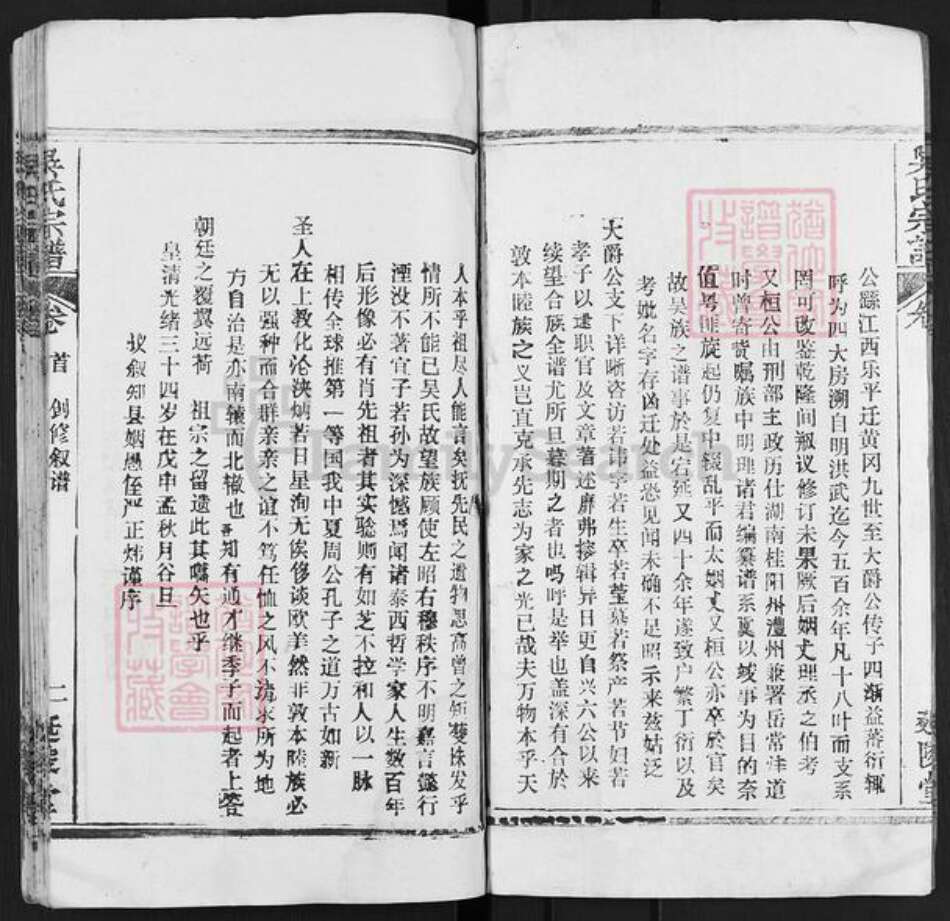 公繇江西乐平迁黄冈九世至大爵公传子四渐益蕃衍辄
呼为四大房溯自明洪武迄今五百余年凡十八叶而支系
罔可改鉴乾隆间溆议修订未果厥后姻丈理丞之伯考
又桓公由刑部主政历仕湖南桂阳州澧州兼署岳常沣道
时曾寄赀嘱族中明理诸君编纂谱系冀以竣事为目的奈
值粤匪旋起仍复中辍乱平而太姻丈又桓公亦卒於官矣
故吴族之谱事於是宕延又四十余年遂致户繁丁衍以及
考妣名字存凶迁处益恐见闻未确不足昭示来兹姑泛
大爵公支下详晰咨访若讳字若生卒若莹墓若祭产若节妇若
孝子以逮职官及文章著述靡弗掺辑异日更自兴六公以来
续望合族全谱尤所旦暮期之者也呜呼是举也盖深有合於
敦本睦族之义岂直克承先志为家之光已哉夫万物本乎天
人本乎祖尽人能言矣抚先民之遗物思高曾之矩矱姝发乎
情所不能已吴氏故望族顾使左昭右穆秩序不明嘉言懿行
湮没不著宜子若孙为深憾焉闻诸泰西哲学家人生数百年
后形像必有肖先祖者其实验则有如芝不拉和人以一脉
相传全球推第一等国我中夏周公孔子之道万古如新
圣人在上教化沦浃炳若日星洵无俟侈谈欧美然非敦本睦族必
无以强种而合群亲亲之谊不笃任恤之风不流求所为地
方自治是亦南辕而北辙也吾知有通才继季子而起者上答
朝廷之覆翼远荷 祖宗之留遗此其嚆矢也乎
皇清光绪三十四岁在戊申孟秋月谷旦
议叙知县姻愚侄严正炜谨序
吴氏宗谱 卷首 创修叙谱 二 延陵堂
吴氏宗谱 卷 延陵堂
FamilySearch